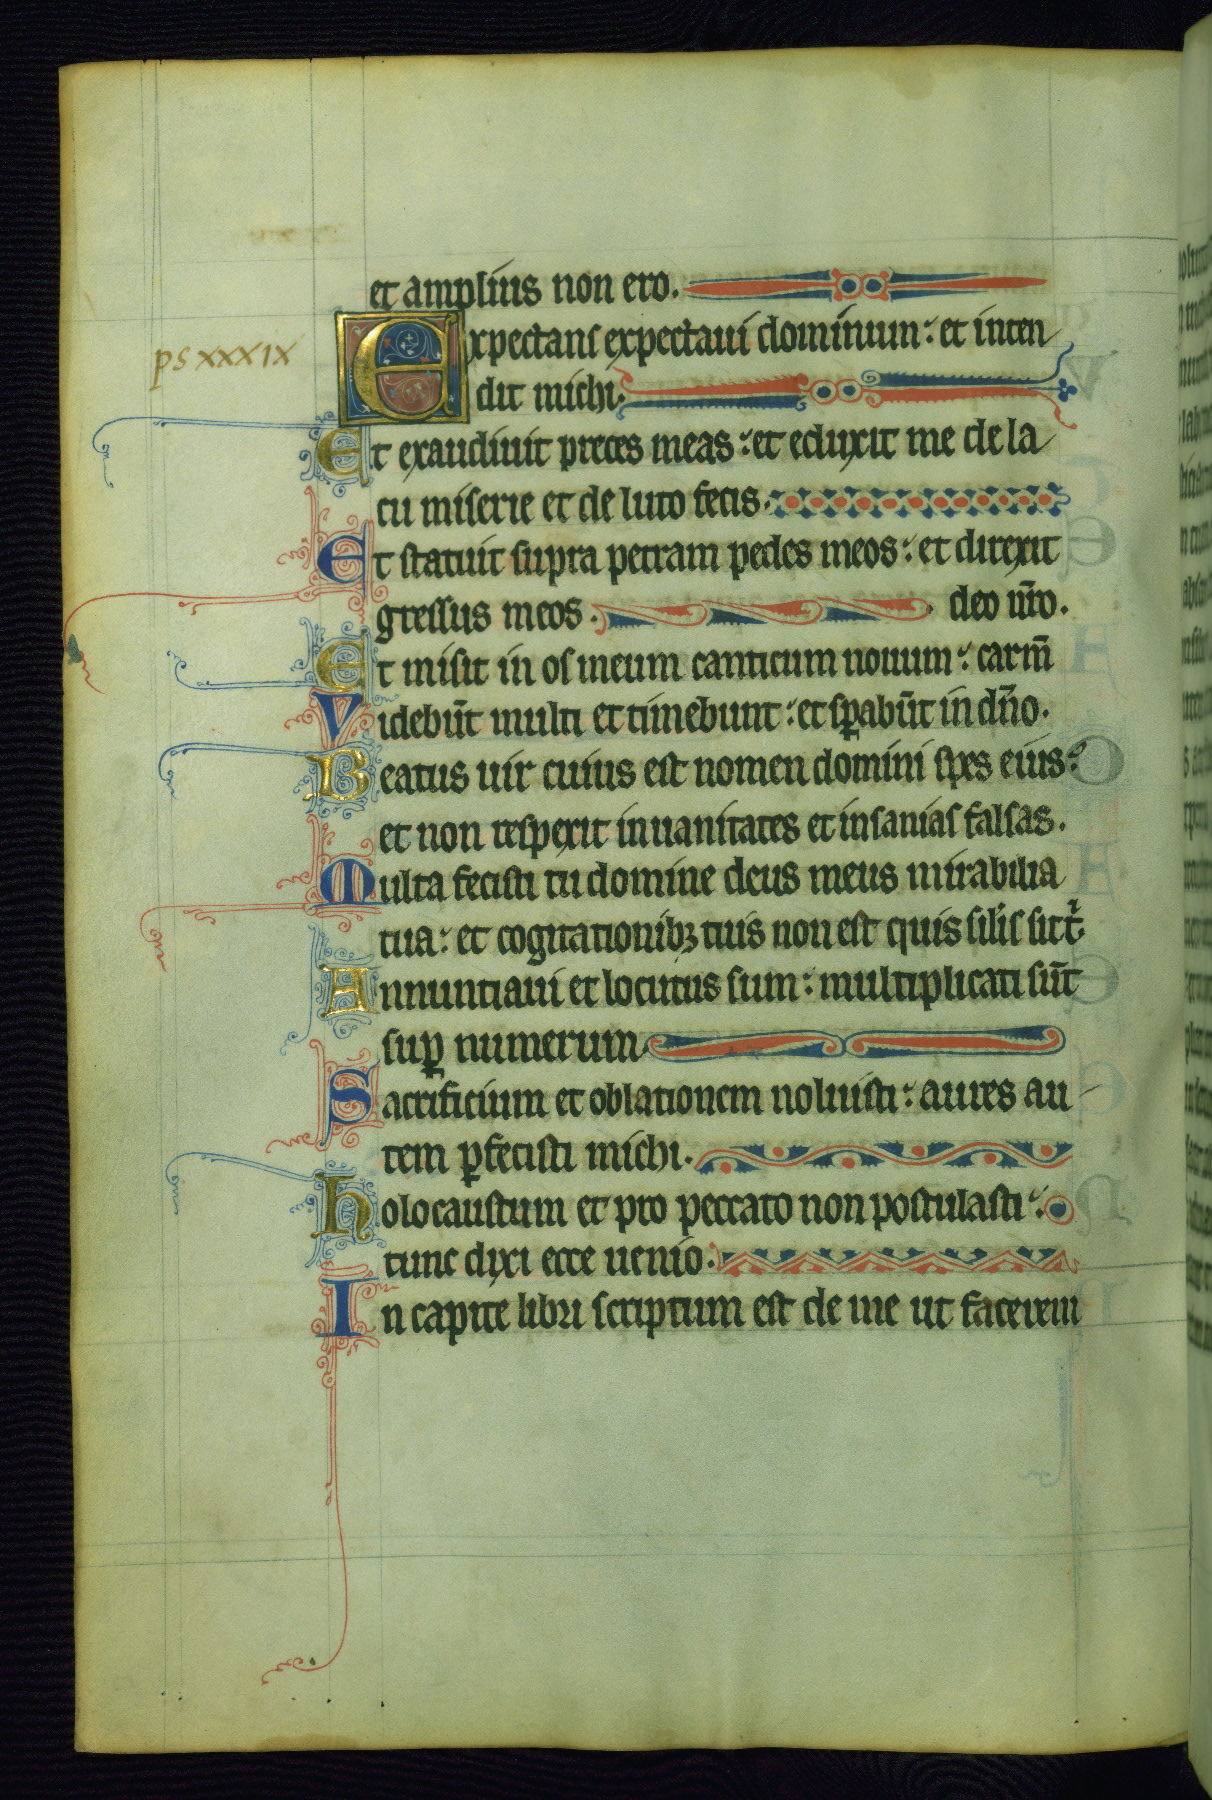 et amplius non ero.
ps XXXIX
Expectans expectaui dominum: et inten
dit michi.
Et exaudiuit preces meas: et eduxit me de la
cu miserie et de luto fecis.
Et statuit supra petram pedes meos: et direxit
gressus meos. deo nr̄o.
Et inisit in os meum canticum nouum: carm̄
Videbūt multi et timebunt: et sꝑabūt in dn̄o.
Beatus uir cuius est nomen domini spes eius:
et non respexit in uanitates et insanias falsas.
Multa fecisti tu domine deus meus mirabilia
tua: et cogitationibꝫ tuis non est quis silis sit t̉
Annuntiaui et locutus sum: multiplicati sūt
suꝑ numerum
Sacrificium et oblationem noluisti: aures au
tem ꝑfecisti michi.
Holocaustum et pro peccato non postulasti:
tunc dixi ecce uenio.
In capite libri scriptum est de me ut facerem